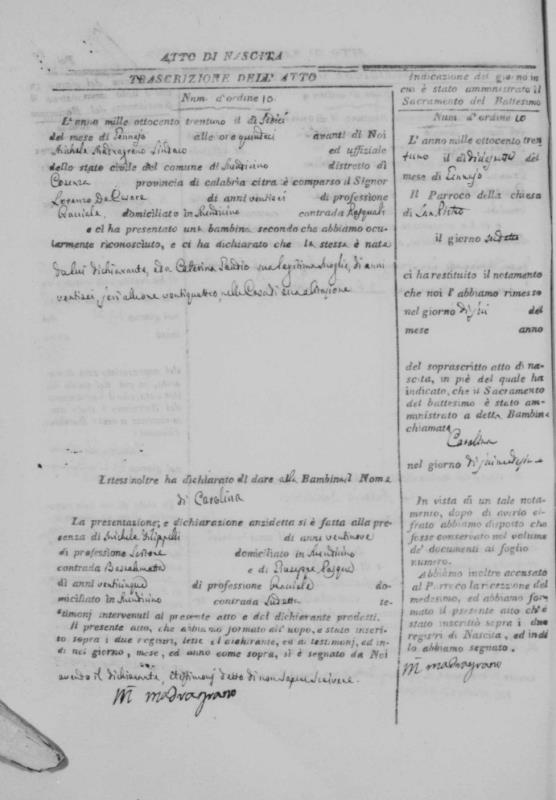 ATTO DI NASCITA
TRASCRIZIONE DELL' ATTO
Num. d'ordine 10.
L'anno mille ottocento trentuno il dì sedici
del mese di Gennajo alle ore quindici avanti di Noi
Michele Madragrano Sindaco ed uffiziale
dello stato civile del comune di Mendicino distretto di
Cosenza provincia di calabria citra è comparso il Signor
Lorenzo De Cesare di anni ventisei di professione
domiciliato in Mendicino contrada Pasquali
e ci ha presentato una bambina secondo che abbiamo ocu-
larmente riconosciuto, e ci ha dichiarato che la stessa è nata
da lui dichiarante, e da Caterina Gaudio sua legittima moglie, di anni
ventisei, jeri alle ore ventiquattro nella Casa di sua abitazione
Lo stesso inoltre ha dichiarato di dare alla Bambina il Nome
di Carolina
La presentazione, e dichiarazione anzidetta si è fatta alla pre-
senza di Michele Filippelli di anni ventinove
di professione domiciliato in Mendicino
contrada e di Giuseppe
di anni ventinque di professione do-
miciliato in Mendicino contrada sudetta te-
stimonj intervenuti al presente atto e del dichiarante prodotti.
Il presente atto, che abbiamo formato all'uopo, è stato inscrit-
to sopra i due registri, letto al dichiarante, ed a' testimonj, ed in-
di nel giorno, mese, ed anno come sopra, si è segnato da Noi
avendo il dichiarante, e testimonj detto di non sapere scrivere.
M madragrano
Indicazione del giorno in
cui è stato amministrato il
Sacramento del Battesimo
Num. d'ordine 10
L'anno mille ottocento tren-
tuno il dì del
mese di Gennajo
Il Parroco della chiesa
di San Pietro
il giorno sudetto
ci ha restituito il notamento
che noi l'abbiamo rimesso
nel giorno del
mese anno
del soprascritto atto di na-
scita, in piè del quale ha
indicato, che il Sacramento
del battesimo è stato am-
ministrato a detta Bambina
chiamata
Carolina
nel giorno
In vista di un tale nota-
mento, dopo di averlo ci-
frato abbiamo disposto che
fosse conservato nel volume
de' documenti al foglio
numero.
Abbiamo inoltre accusato
al Parroco la ricezione del
medesimo, ed abbiamo for-
mato il presente atto ch'è
stato inscritto sopra i due
registri di Nascita, ed indi
lo abbiamo segnato.
M madragrano